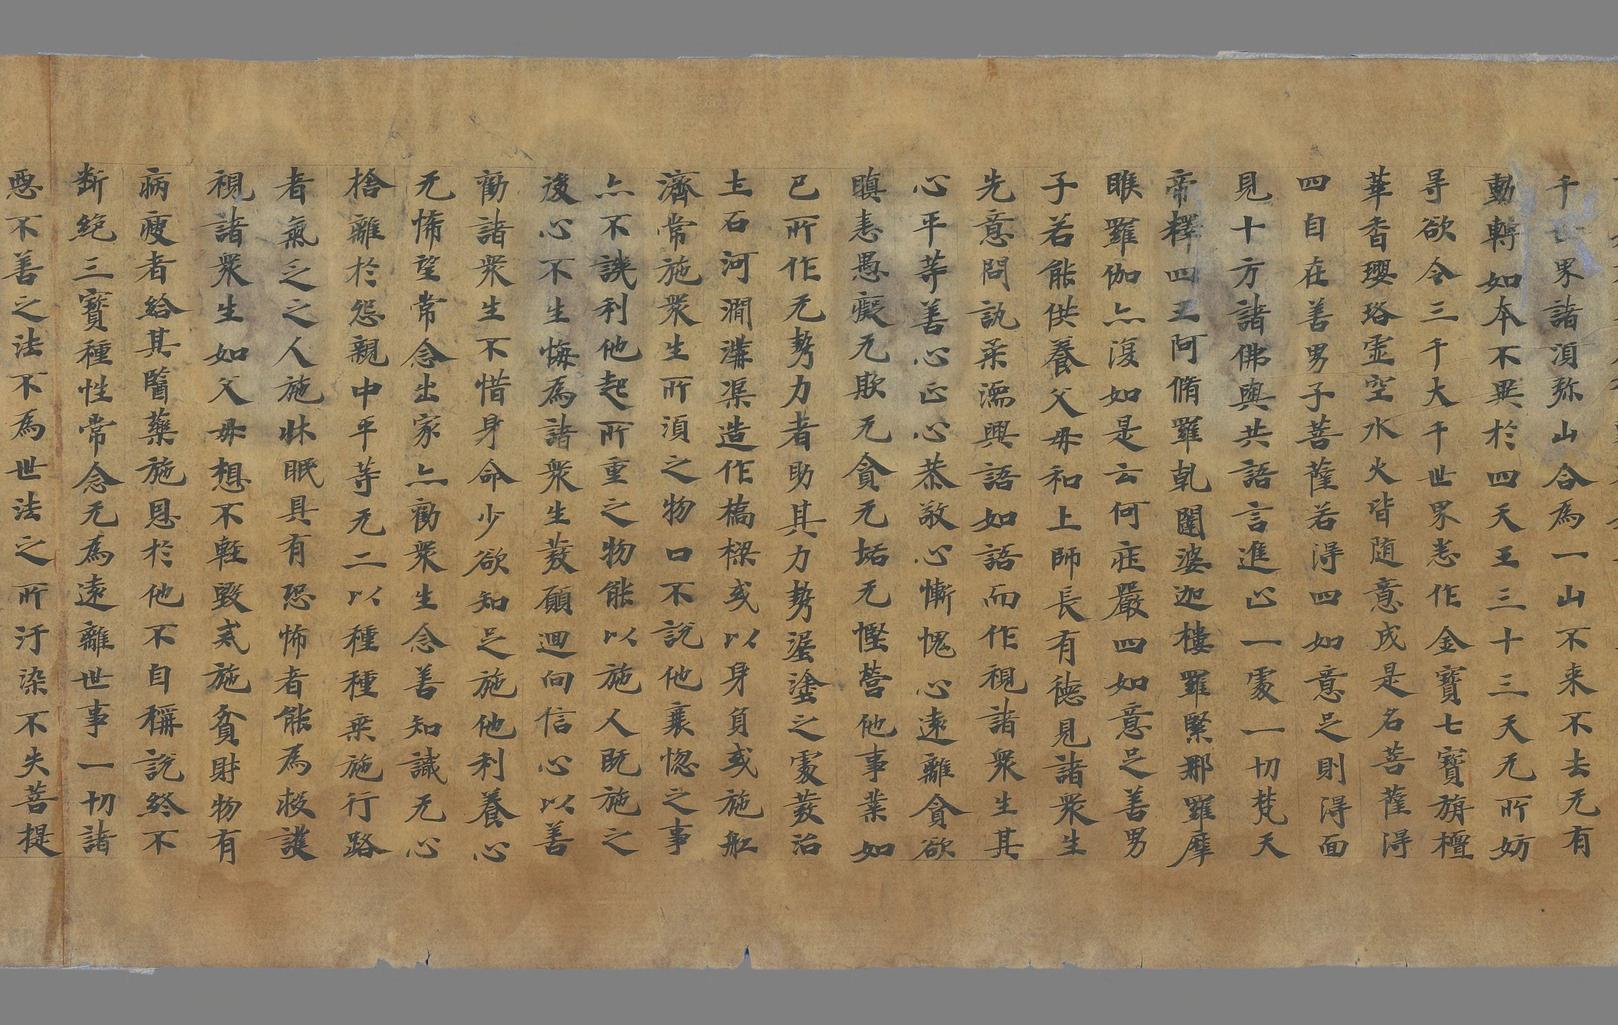 千世界諸湏弥山合為一山不来不去无有
動轉如本不異於四天王三十三天无所妨
㝵欲令三千大千世界悉作金寶七寶旃檀
華香瓔珞虚空水火皆随意成是名菩薩得
四自在善男子菩薩若得四如意足則得面
見十方諸佛與共語言進止一處一切梵天
帝釋四王阿脩羅乹闥婆迦樓羅緊那羅摩
睺羅伽亦復如是云何疰嚴四如意足善男
子若能供養父毋和上師長有德見諸衆生
先意問訊柔濡興語如語而作視諸衆生其
心平等善心正心恭敬心慚愧心遠離貪欲
瞋恚愚癡无欺无貪无垢无慳營他事業如
已所作无勢力者助其力勢埿塗之處䒱治
土石河澗溝渠造作橋樑或以身負或施舩
濟常施衆生所湏之物口不說他衰惚之事
亦不譏利他起所重之物能以施人既施之
後心不生悔為諸衆生䒱願迴向信心以善
勸諸衆生不惜身命少欲知足施他利養心
无悕望常念出家亦勸衆生念善知識无心
捨離於怨親中平等无二以種種乗施行路
者氣乏之人施牀眠具有恐怖者能為救護
視諸衆生如父毋想不輕毀戒施貧財物有
病瘦者給其醫藥施恩於他不自稱說終不
断絶三寶種性常念无為遠離世事一切諸
惡不善之法不為世法之所汙染不失菩提